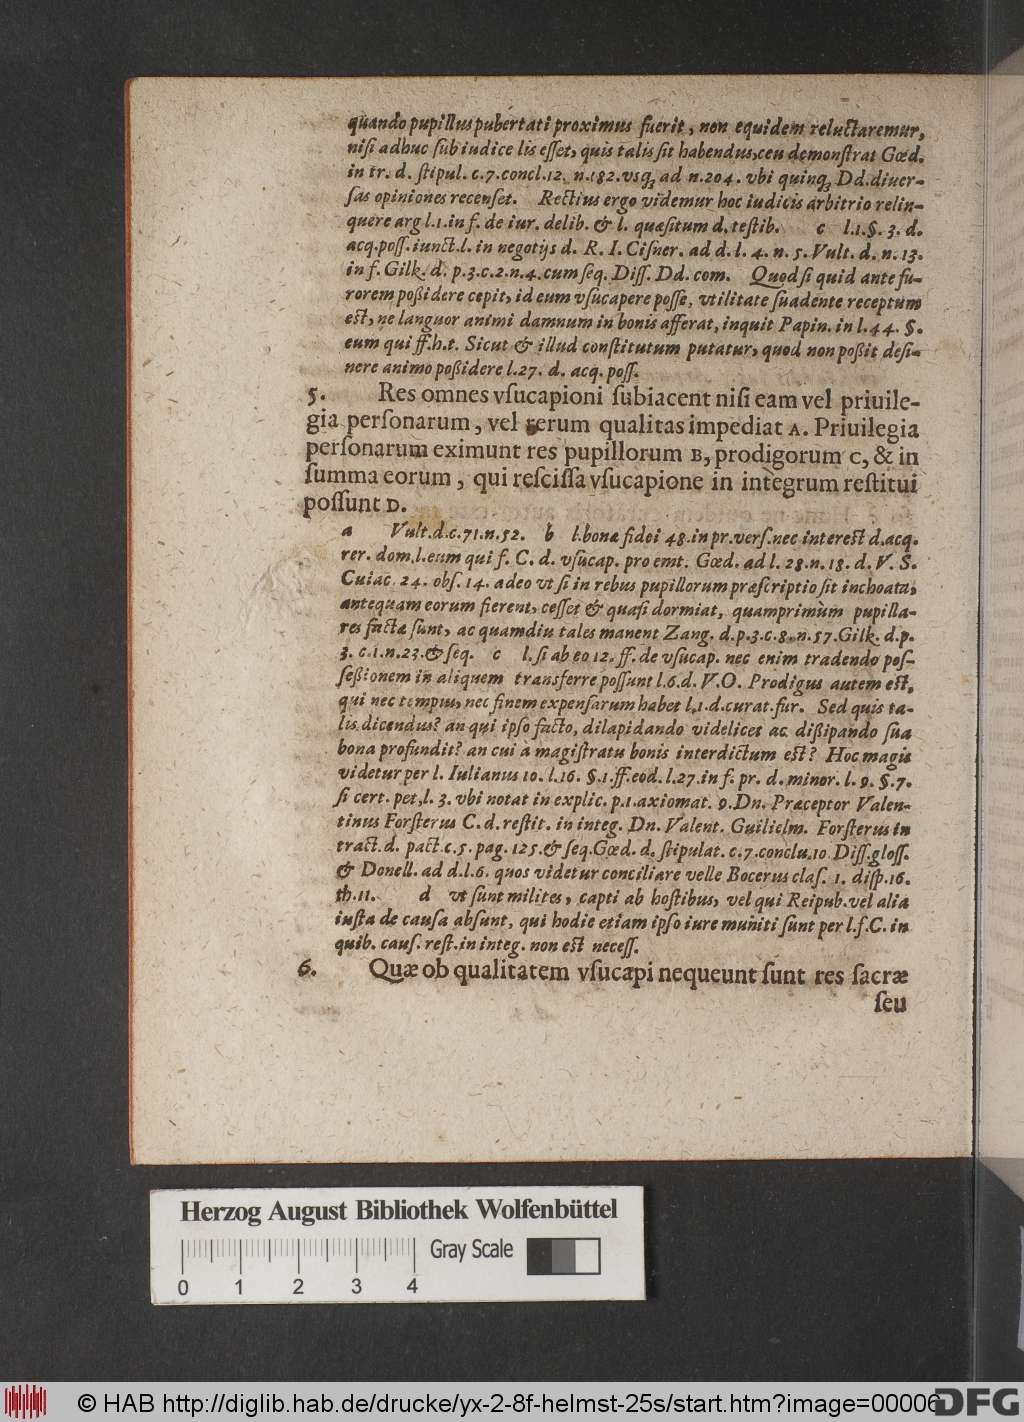 quando pupillus pubertati proximus fuerit, non equidem reluctaremur,
nisi adhuc sub iudice lis esset, quis talis sit habendus, ceu demonstrat Gœd.
in tr. d. stipul. c.7. concl.12. n.182. vsq; ad n.204. vbi quinq; Dd. diuer-
sas opiniones recenset. Rectius ergo videmur hoc iudicis arbitrio relin-
quere arg l.1. in f. de iur. delib. & l. quæsitum d. testib. c l.1. §. 3. d.
acq. poss. iunct. l. in negotijs d. R. I. Cisner. ad d. l. 4. n. 5. Vult. d. n. 13.
in f. Gilk. d. p.3.c.2.n.4. cum seq. Diss. Dd. com. Quod si quid ante fu-
rorem poßidere cepit, id eum vsucapere posse, vtilitate suadente receptum
est, ne languor animi damnum in bonis afferat, inquit Papin. in l.44. §.
eum qui ff.h.t. Sicut & illud constitutum putatur, quod non poßit desi-
nere animo poßidere l.27. d. acq. poss.
5. Res omnes vsucapioni subiacent nisi eam vel priuile-
gia personarum, vel rerum qualitas impediat A. Priuilegia
personarum eximunt res pupillorum B, prodigorum C, & in
summa eorum, qui rescissa vsucapione in integrum restitui
possunt D.
a Vult. d.c.71.n.52. b l. bonæ fidei 48. in pr. vers. nec interest d. acq.
rer. dom. l. eum qui f. C. d. vsucap. pro emt. Gœd. ad l. 28. n.18. d. V. S.
Cuiac. 24. obs. 14. adeo vt si in rebus pupillorum præscriptio sit inchoata,
antequam eorum fierent, cesset & quasi dormiat, quamprimùm pupilla-
res factæ sunt, ac quamdiu tales manent Zang. d.p.3.c.8.n.57. Gilk. d.p.
3. c.1.n.23. & seq. c l. si ab eo 12. ff. de vsucap. nec enim tradendo pos-
seßionem in aliquem transferre possunt l.6.d. V.O. Prodigus autem est,
qui nec tempus, nec finem expensarum habet l.1.d. curat. fur. Sed quis ta-
lis dicendus? an qui ipso facto, dilapidando videlicet ac dißipando sua
bona profundit? an cui à magistratu bonis interdictum est? Hoc magis
videtur per l. Iulianus 10. l.16. §.1. ff. eod. l.27. in f. pr. d. minor. l. 9. §.7.
si cert. pet. l. 3. vbi notat in explic. p.1. axiomat. 9. Dn. Præceptor Valen-
tinus Forsterus C. d. restit. in integ. Dn. Valent. Guilielm. Forsterus in
tract. d. pact. c.5. pag. 125. & seq. Gœd. d. stipulat. c.7. conclu.10 Diss. gloss.
& Donell. ad d.l.6. quos videtur conciliare velle Bocerus clas. 1. disp.16.
th.11. d vt sunt milites, capti ab hostibus, vel qui Reipub. vel alia
iusta de causa absunt, qui hodie etiam ipso iure muniti sunt per l.f.C. in
quib. caus. rest. in integ. non est necess.
6. Quæ ob qualitatem vsucapi nequeunt sunt res sacræ
seu
Herzog August Bibliothek Wolfenbüttel
Gray Scale
0 1 2 3 4
© HAB http://diglib.hab.de/drucke/yx-2-8f-helmst-25s/start.htm?image=00006
DFG